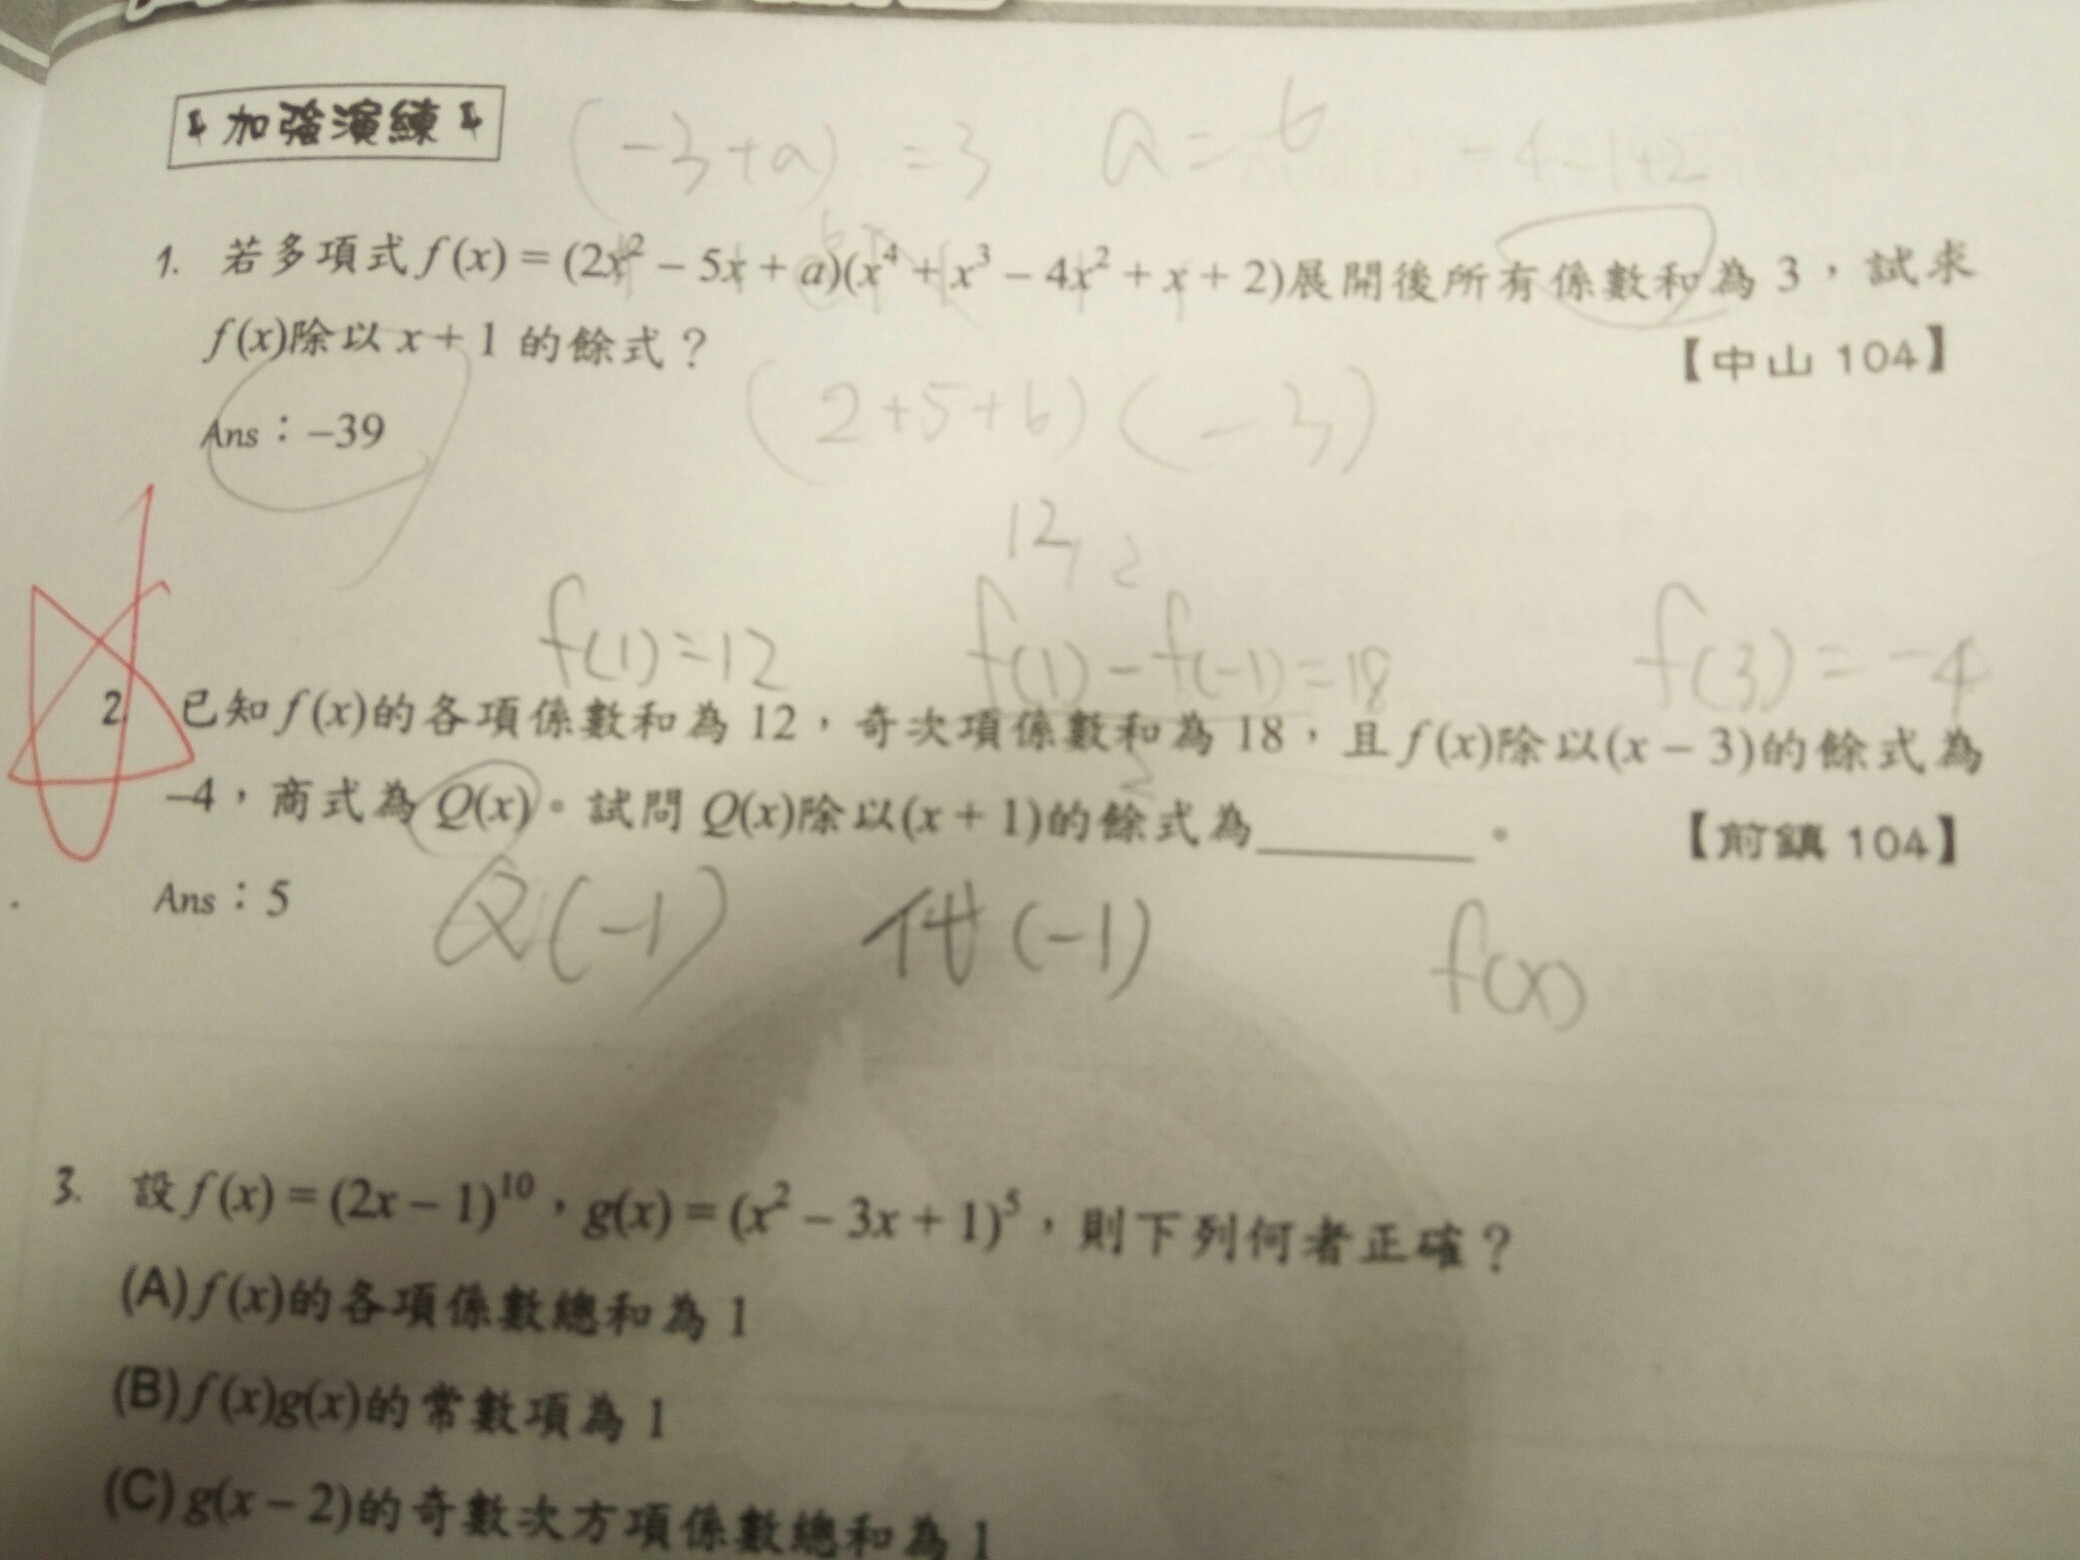 加強演練
(-3+a) = 3 a = 6 -4-1+2
1. 若多項式 f(x) = (2x² – 5x + a)(x⁴ + x³ – 4x² + x + 2)展開後所有係數和為 3，試求
f(x)除以 x + 1 的餘式？
【中山 104】
Ans：–39
(2+5+6)(-3)
12
2
f(1)=12 f(1)-f(-1)=18 f(3)=-4
2
2. 已知 f(x)的各項係數和為 12，奇次項係數和為 18，且 f(x)除以(x – 3)的餘式為
–4，商式為 Q(x)。試問 Q(x)除以(x + 1)的餘式為________。
【前鎮 104】
Ans：5
Q(-1) 代(-1) f(x)
3. 設 f(x) = (2x – 1)¹⁰，g(x) = (x² – 3x + 1)⁵，則下列何者正確？
(A) f(x)的各項係數總和為 1
(B) f(x)g(x)的常數項為 1
(C) g(x – 2)的奇數次方項係數總和為 1